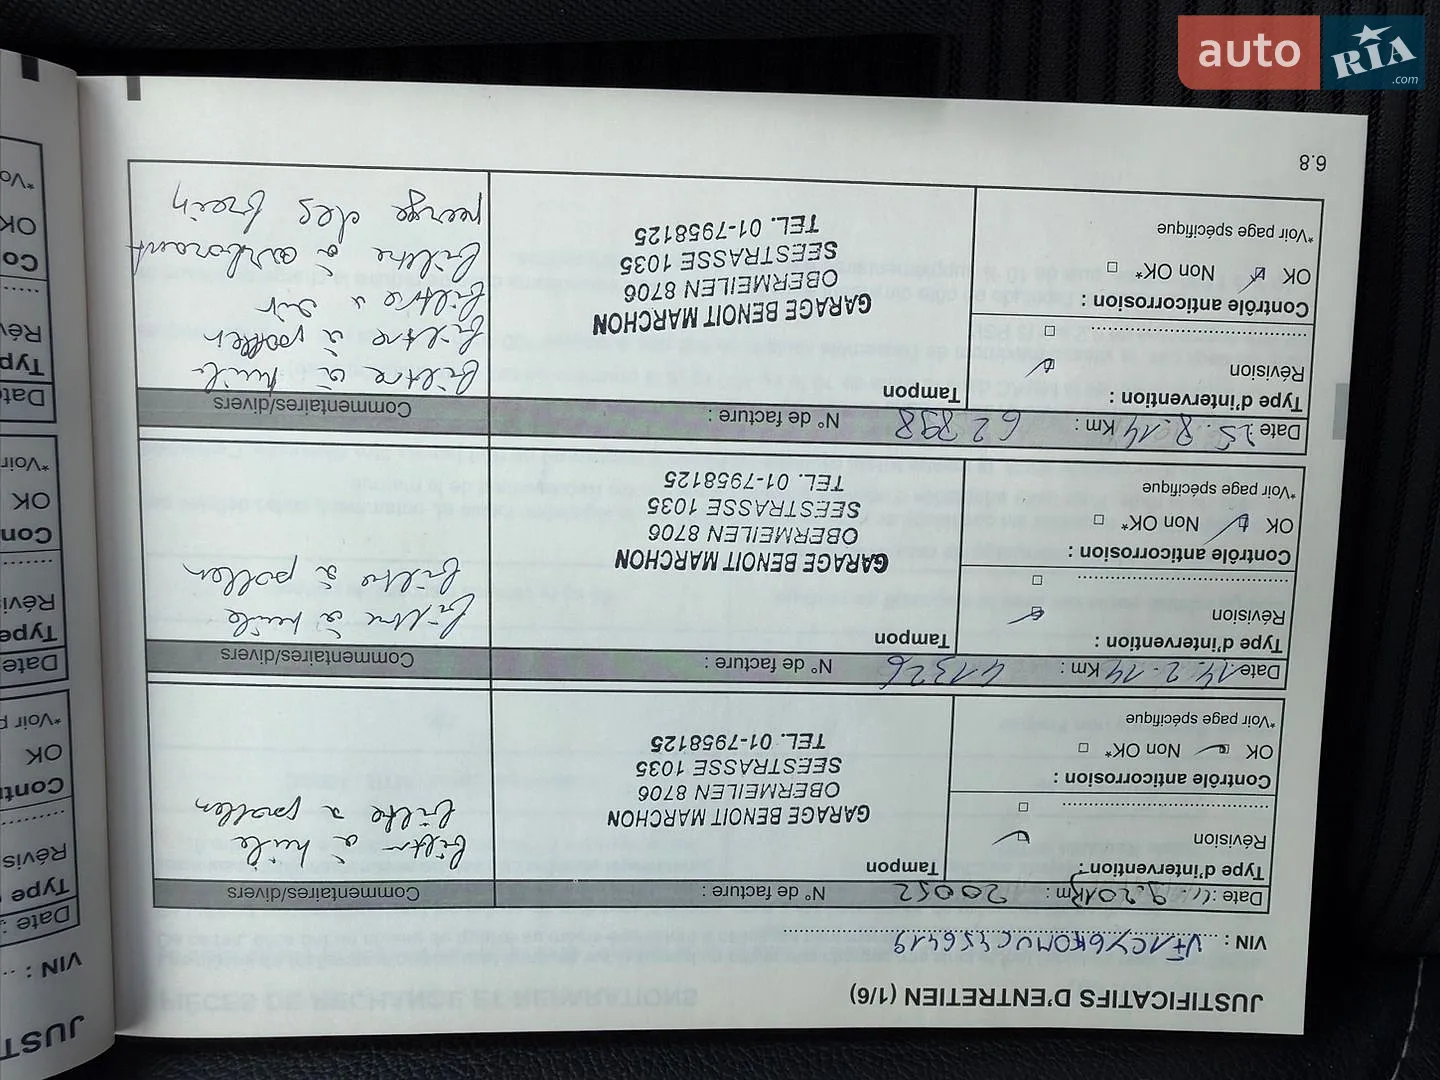 auto
RIA
.com
JUSTIFICATIFS D'ENTRETIEN (1/6)
VIN :
Date : Km : 20052 N° de facture : Commentaires/divers
Type d'intervention :
Révision
Tampon
GARAGE BENOIT MARCHON
OBERMEILEN 8706
SEESTRASSE 1035
TEL. 01-7958125
Contrôle anticorrosion :
OK Non OK*
*Voir page spécifique
filtre à huile
filtre à pollen
Date : 14.2.14 Km : 41326 N° de facture : Commentaires/divers
Type d'intervention :
Révision
Tampon
GARAGE BENOIT MARCHON
OBERMEILEN 8706
SEESTRASSE 1035
TEL. 01-7958125
Contrôle anticorrosion :
OK Non OK*
*Voir page spécifique
filtre à huile
filtre à pollen
Date : 25.8.14 Km : 62898 N° de facture : Commentaires/divers
Type d'intervention :
Révision
Tampon
GARAGE BENOIT MARCHON
OBERMEILEN 8706
SEESTRASSE 1035
TEL. 01-7958125
Contrôle anticorrosion :
OK Non OK*
*Voir page spécifique
filtre à huile
filtre à pollen
filtre à air
filtre à carborant
purge des frein
6.8
JUST
VIN :
Date :
Type
Révis
Contr
OK
*Voir p
Date
Type
Révis
Con
OK
*Voir
Date
Typ
Rév
Co
OK
*Vo